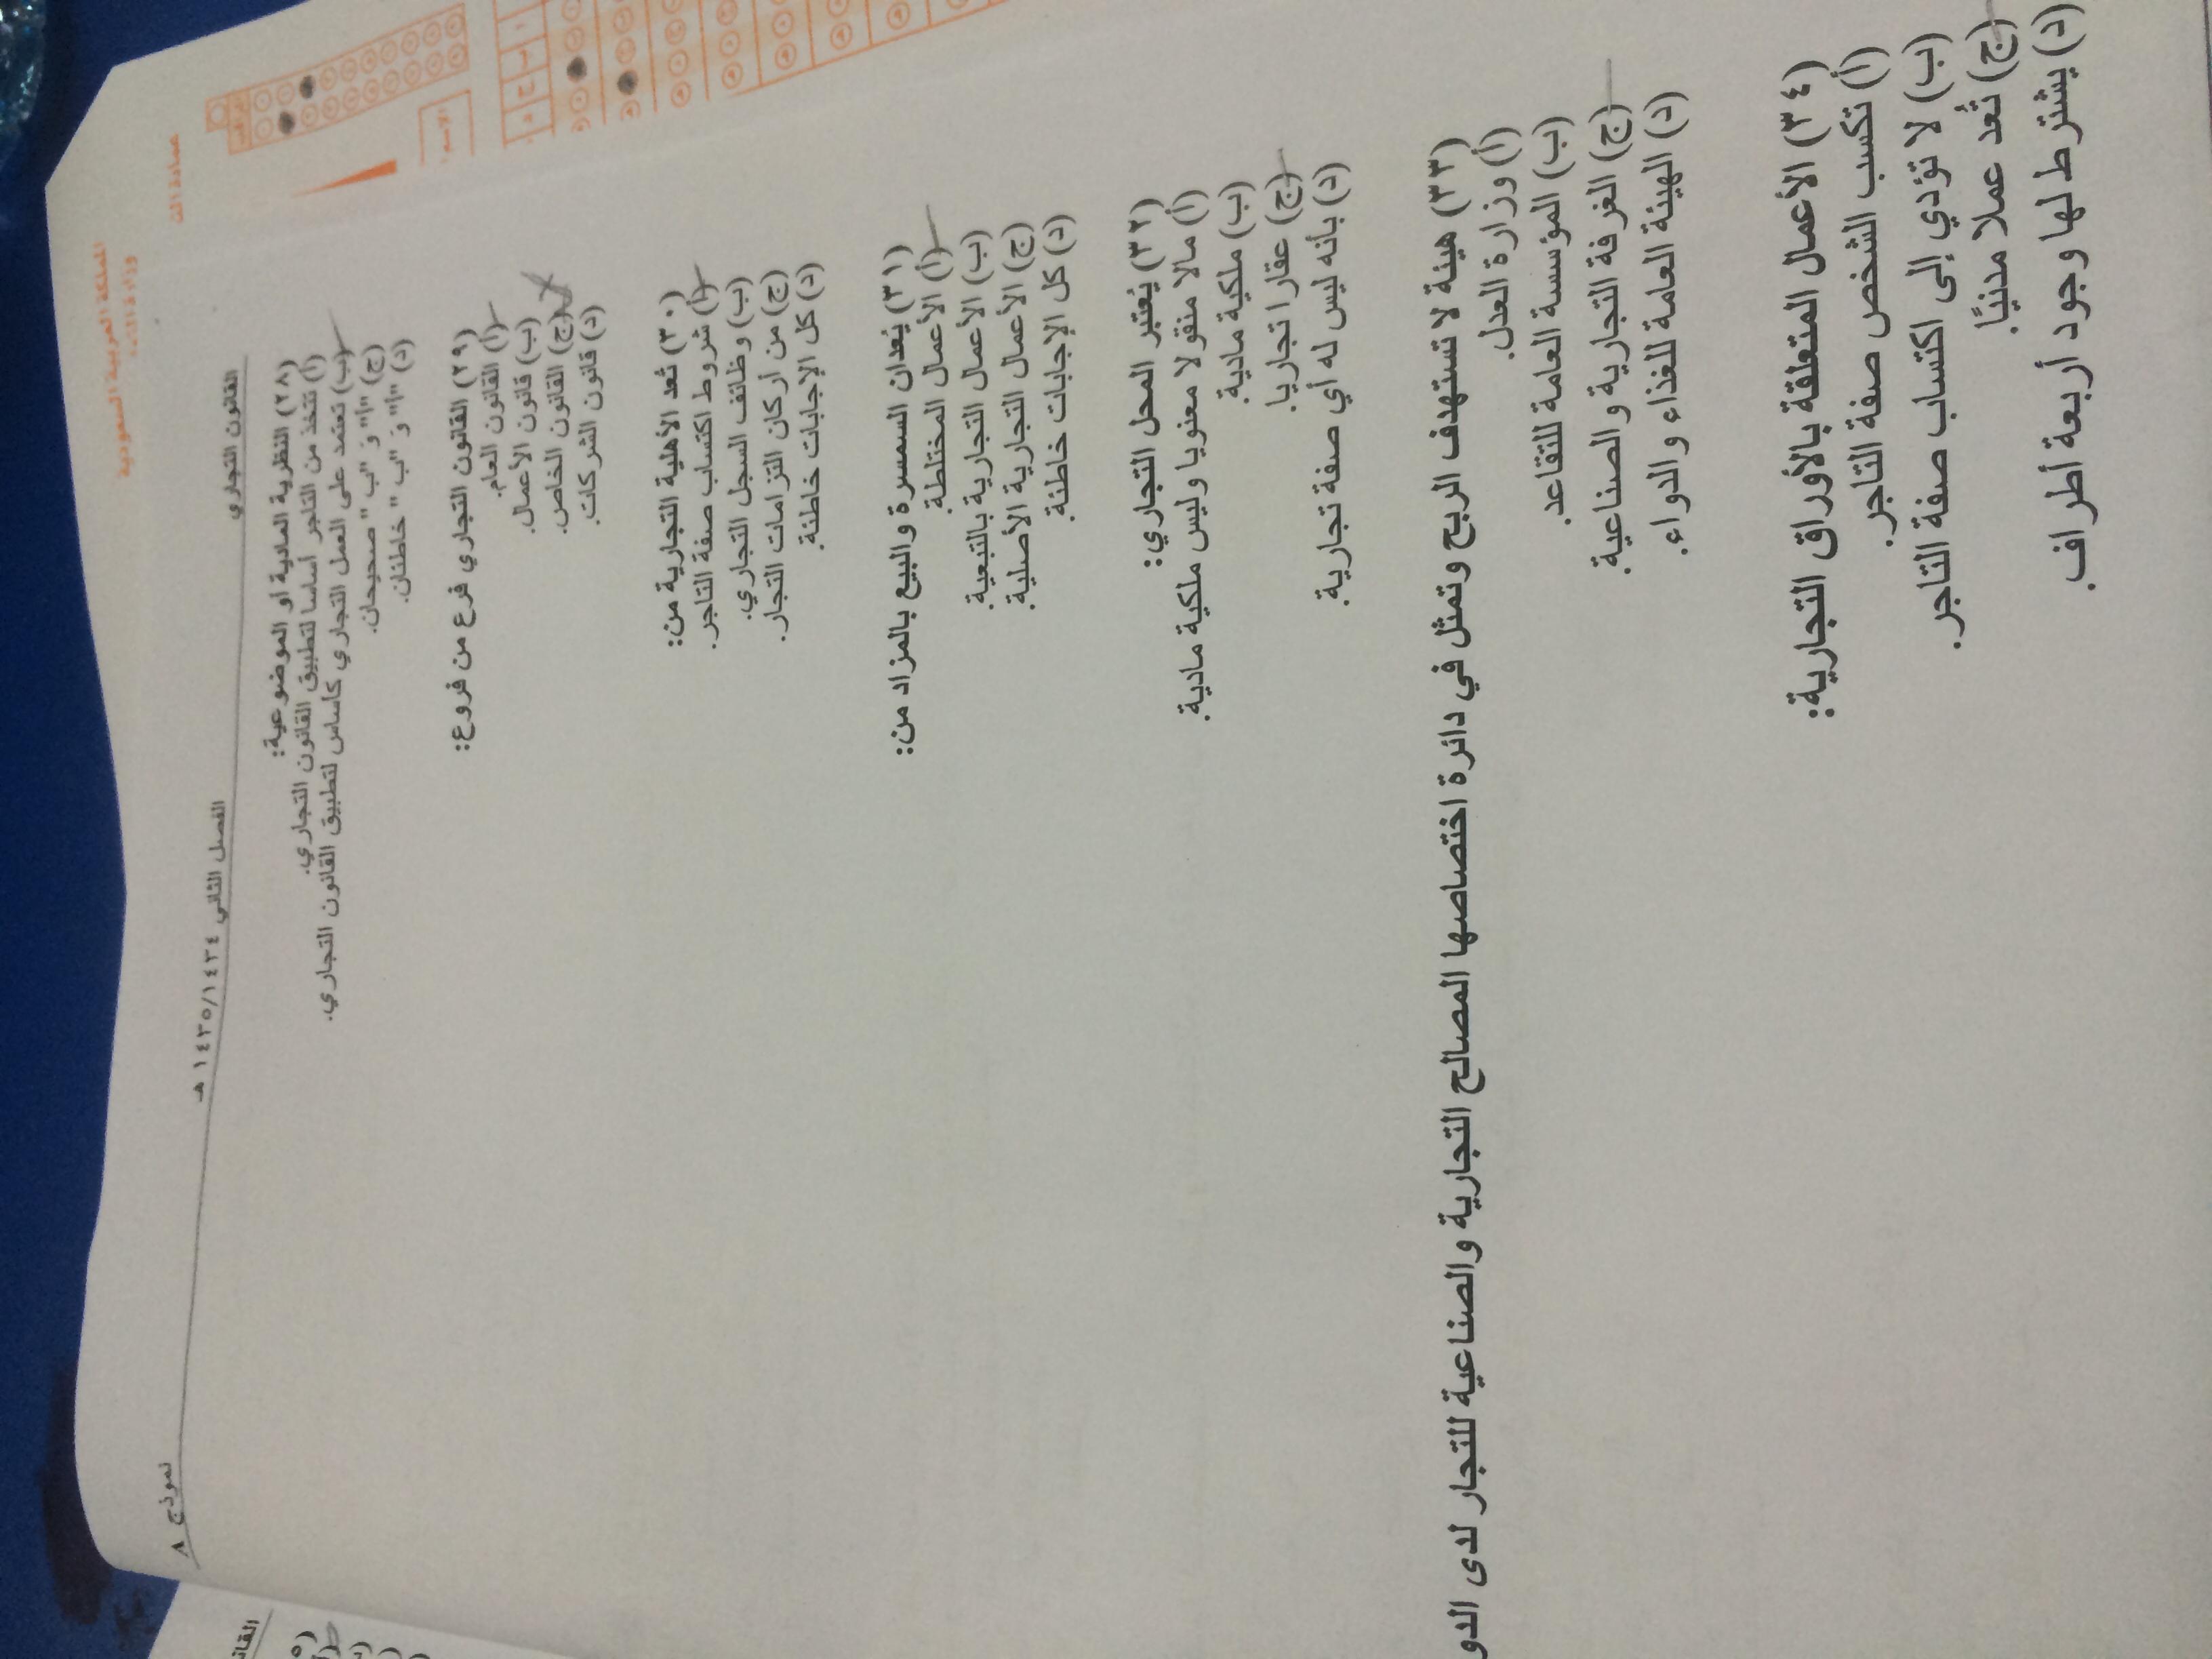 المملكة العربية السعودية
القانون التجاري
الفصل الثاني ١٤٣٥/١٤٣٤ هـ
نموذج ٨
(٢٨) النظرية المادية أو الموضوعية:
(أ) تتخذ من التاجر أساسا لتطبيق القانون التجاري.
(ب) تعتمد على العمل التجاري كأساس لتطبيق القانون التجاري.
(ج) "أ" و "ب" صحيحان.
(د) "أ" و "ب" خاطئان.
(٢٩) القانون التجاري فرع من فروع:
(أ) القانون العام.
(ب) قانون الأعمال.
(ج) القانون الخاص.
(د) قانون الشركات.
(٣٠) تُعد الأهلية التجارية من:
(أ) شروط اكتساب صفة التاجر.
(ب) وظائف السجل التجاري.
(ج) من أركان التزامات التجار.
(د) كل الإجابات خاطئة.
(٣١) يُعدان السمسرة والبيع بالمزاد من:
(أ) الأعمال المختلطة.
(ب) الأعمال التجارية بالتبعية.
(ج) الأعمال التجارية الأصلية.
(د) كل الإجابات خاطئة.
(٣٢) يُعتبر المحل التجاري:
(أ) مالا منقولا معنويا وليس ملكية مادية.
(ب) ملكية مادية.
(ج) عقارا تجاريا.
(د) بأنه ليس له أي صفة تجارية.
(٣٣) هيئة لا تستهدف الربح وتمثل في دائرة اختصاصها المصالح التجارية والصناعية للتجار لدى الدو
(أ) وزارة العدل.
(ب) المؤسسة العامة للتقاعد.
(ج) الغرفة التجارية والصناعية.
(د) الهيئة العامة للغذاء والدواء.
(٣٤) الأعمال المتعلقة بالأوراق التجارية:
(أ) تكسب الشخص صفة التاجر.
(ب) لا تؤدي إلى اكتساب صفة التاجر.
(ج) تُعد عملا مدنيًا.
(د) يشترط لها وجود أربعة أطراف.